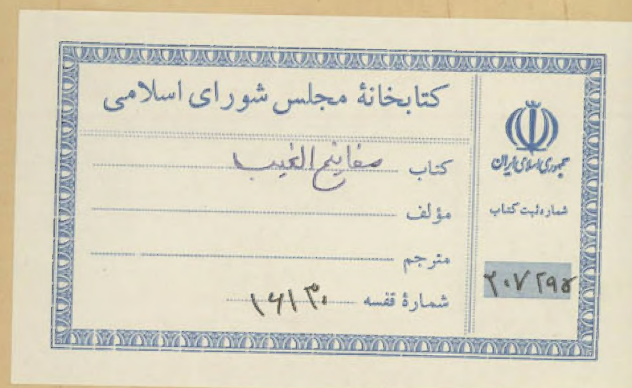 کتابخانهٔ مجلس شورای اسلامی
کتاب مفاتیح الغیب
مؤلف
مترجم
شمارهٔ قفسه ۱۶۱۳۰
جمهوری اسلامی ایران
شماره ثبت کتاب
۲۰۷۲۹۵